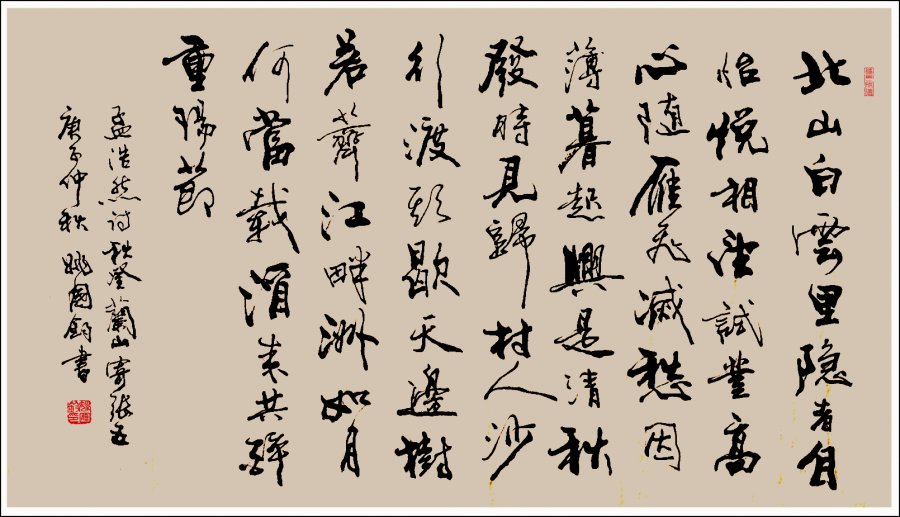 北山白雲里隐者自
怡悦相望試登高
心随雁飛滅愁因
薄暮起興是清秋
發時見歸村人沙
行渡頭歇天邊樹
若薺江畔洲如月
何當載酒来共醉
重陽節
孟浩然詩秋登蘭山寄張五
庚子仲秋 姚國鈞書